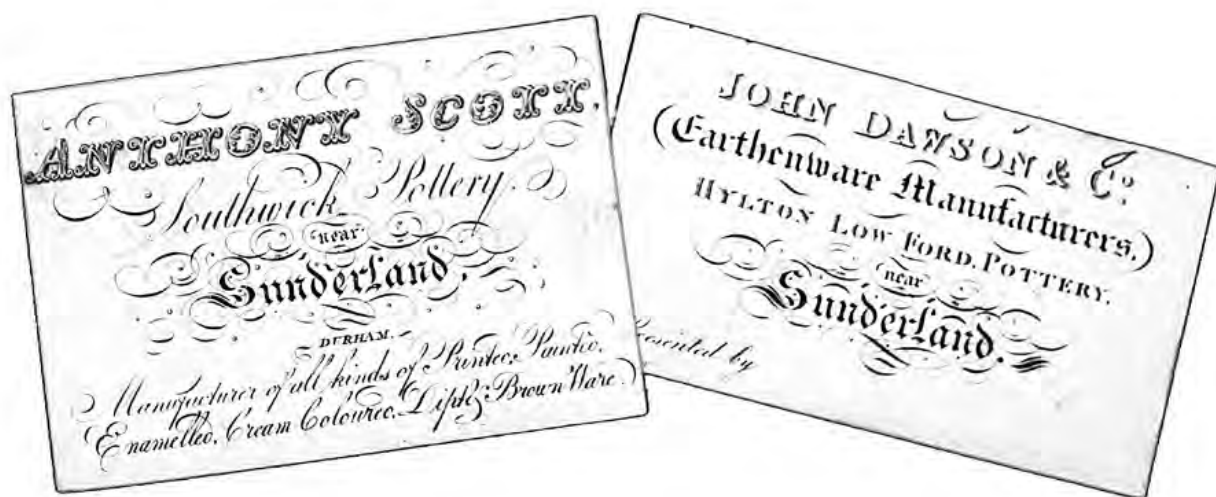 ANTHONY SCOTT.
Southwick Pottery.
near
Sunderland.
DURHAM.
Manufacturer of all kinds of Printed, Painted,
Enamelled, Cream Coloured, Dipt, & Brown Ware.
JOHN DAWSON & Co.
(Earthenware Manufacturers,)
HYLTON LOW FORD, POTTERY,
near
Sunderland.
Presented by